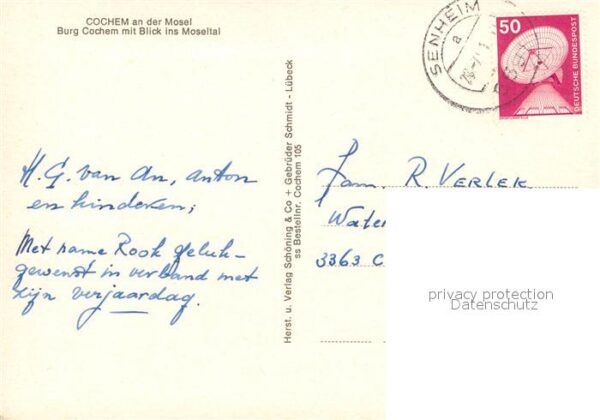 COCHEM an der Mosel
Burg Cochem mit Blick ins Moseltal
H. G. van An, Anton
en kinderen;
Met name Rook geluk-
gewenst in verband met
zijn verjaardag.
Herst. u. Verlag Schöning & Co + Gebrüder Schmidt - Lübeck
ss Bestellnr. Cochem 105
SENHEIM
a
50
DEUTSCHE BUNDESPOST
Fam. R. Verlek
Water
3363 C
privacy protection
Datenschutz